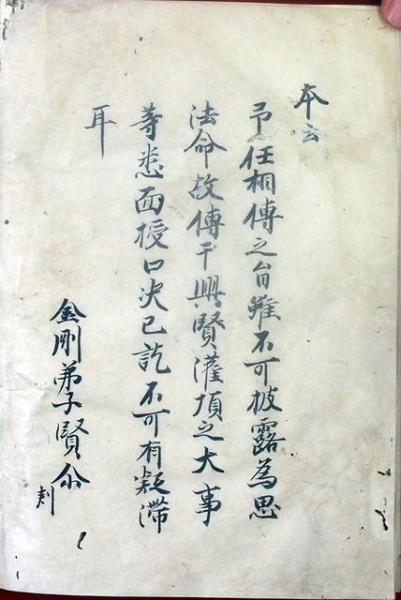 本云
予任相傳之旨雖不可披露為思
法命故傳于興賢灌頂之大事
等悉面授口决已訖不可有凝滞
耳
金剛弟子賢
判